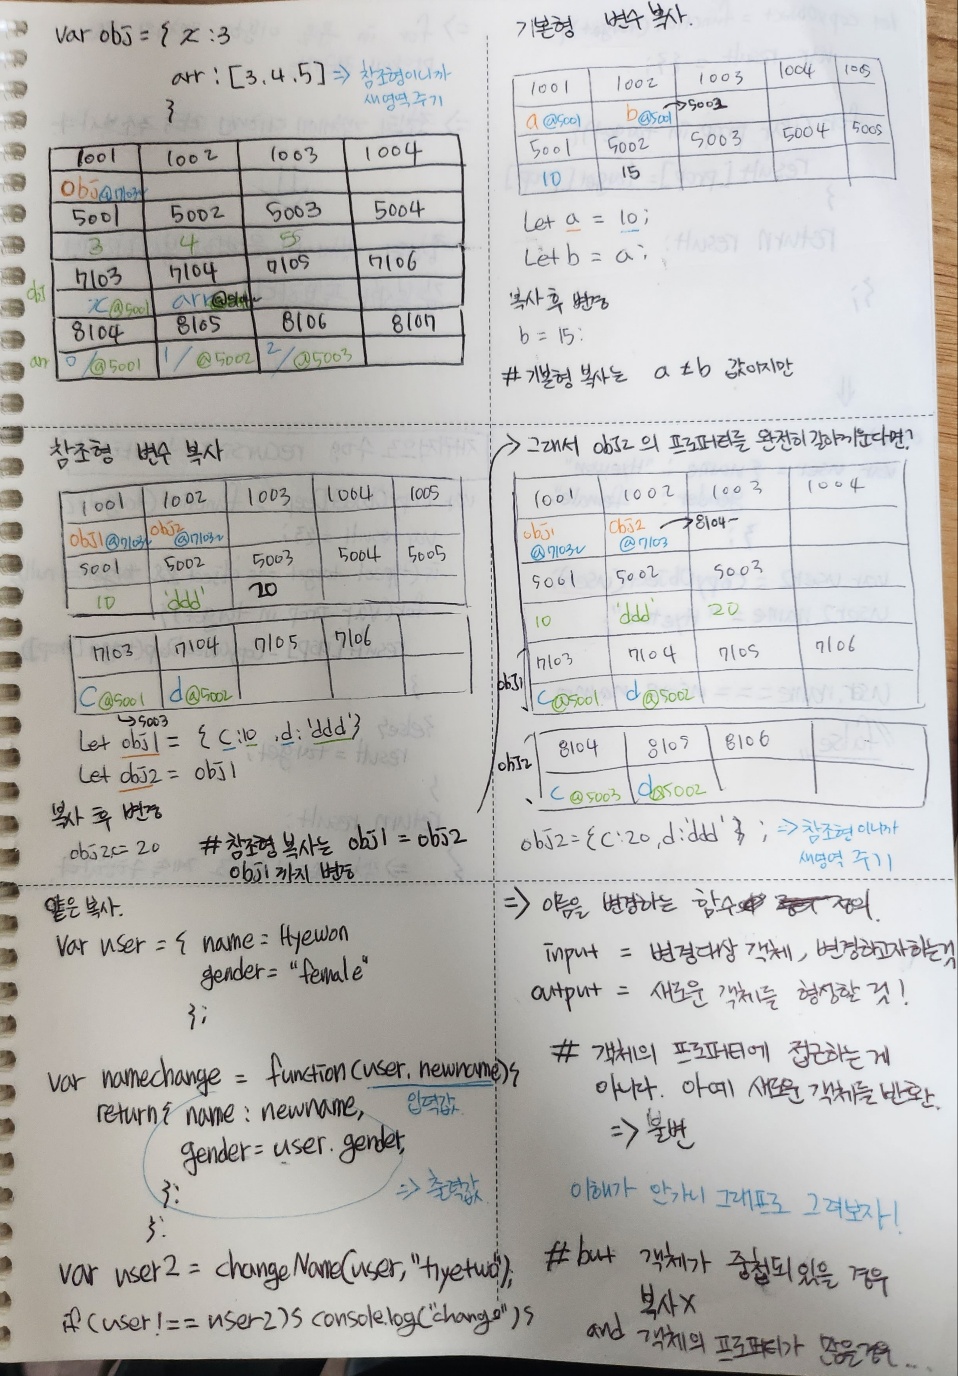 var obj = { x : 3
arr : [3.4.5] => 참조형이니까
새영역 주기
}
1001 1002 1003 1004
obj@7103~
5001 5002 5003 5004
3 4 5
obj 7103 7104 7105 7106
x@5001 arr
8104 8105 8106 8107
arr 0/@5001 1/@5002 2/@5003
기본형 변수 복사.
1001 1002 1003 1004 1005
a@5001 b@5001 →5002
5001 5002 5003 5004 5005
10 15
Let a = 10;
Let b = a;
복사 후 변경
b = 15:
# 기본형 복사는 a ≠ b 값이지만
참조형 변수 복사
1001 1002 1003 1004 1005
obj1@7103~ obj2@7103~
5001 5002 5003 5004 5005
10 'ddd' 20
7103 7104 7105 7106
c@5001 d@5002
→5003
Let obj1 = { c:10 ,d:'ddd'}
Let obj2 = obj1
복사 후 변경
obj2c= 20
# 참조형 복사는 obj1 = obj2
obj1 까지 변동
> 그래서 obj2 의 프로퍼티를 완전히 갈아끼운다면?
1001 1002 1003 1004
obj1 @7103~ obj2 @7103 →8104~
5001 5002 5003
10 'ddd' 20
obj1 7103 7104 7105 7106
c@5001 d@5002
obj2 8104 8105 8106
c@5003 d@5002
obj2={c:20,d:'ddd'} ; => 참조형이니까
새영역 주기
얕은 복사.
var user = { name = Hyewon
gender = "female"
};
var namechange = function(user. newname){
입력값
return{ name : newname,
gender= user. gender,
}: => 출력값
}:
var user2 = changeName(user,"hyetwo");
if (user!== user2){ console.log("change")}
=> 이름을 변경하는 함수 정의.
input = 변경대상 객체, 변경하고자하는것
output = 새로운 객체를 형성할 것!
# 객체의 프로퍼티에 접근하는 게
아니다. 아예 새로운 객체를 반환.
=> 불변
이해가 안가니 그래프로 그려보자!
# but 객체가 중첩되있을 경우
복사X
and 객체의 프로퍼티가 많을경우...